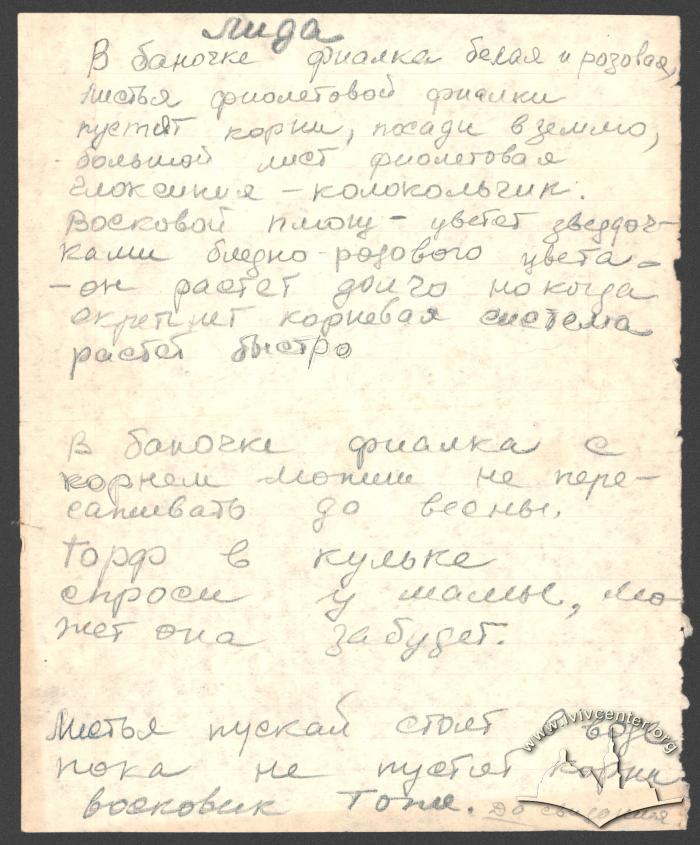 Лида
В баночке фиалка белая и розовая,
Листья фиолетовой фиалки
пустят корни, посади в землю,
большой лист фиолетовая
глоксиния – колокольчик.
Восковой плющ – цветет звездоч-
ками бледно-розового цвета –
– он растет долго но когда
окрепнет корневая система
растет быстро
В баночке фиалка с
корнем можеш не пере-
саживать до весны.
Торф в кульке
спроси у мамы, мо
жет она забудет.
Листья пускай стоят в воде
пока не пустят корни
восковик тоже. До свидания
www.lvivcenter.org